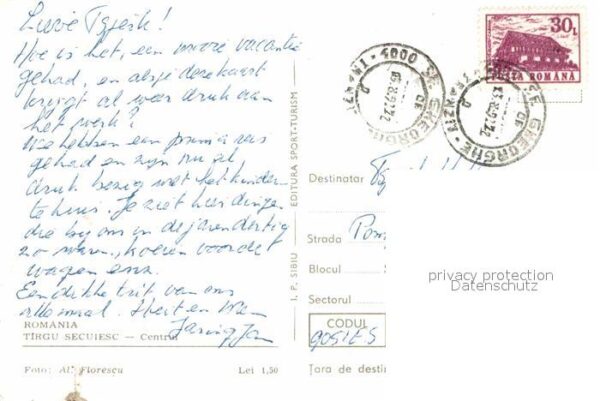 Lieve Tjjesk!
Hoe is het, een mooie vacantie
gehad, en als je deze kaart
krijgt al weer druk aan
het werk?
We hebben een prima reis
gehad en zijn nu
druk bezig met het kinder
tehuis. Je ziet hier dingen
die bij ons in de jaren dertig
zo waren, koeien voor de
wagen enz.
Een dikke van ons
allemaal.
ROMÂNIA
TÎRGU SECUIESC — Centru
Foto: Al. Florescu
Lei 1,50
I. P. SIBIU EDITURA SPORT-TURISM
30 L
POSTA ROMANA
4000 SF. GHEORGHE
SF. GHEORGHE
Destinatar
Strada
Blocul
Sectorul
CODUL
Țara de destin
privacy protection
Datenschutz